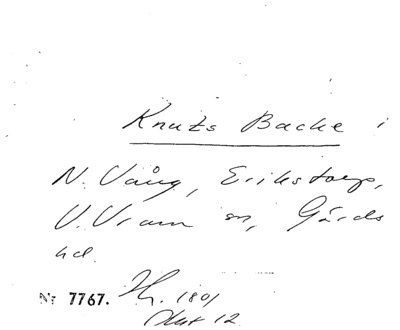 Knuts Backe i
N. Vång, Erikstorp,
V. Vram sn, Gärds
hd.
Nr 7767. H. 1801
Akt 12